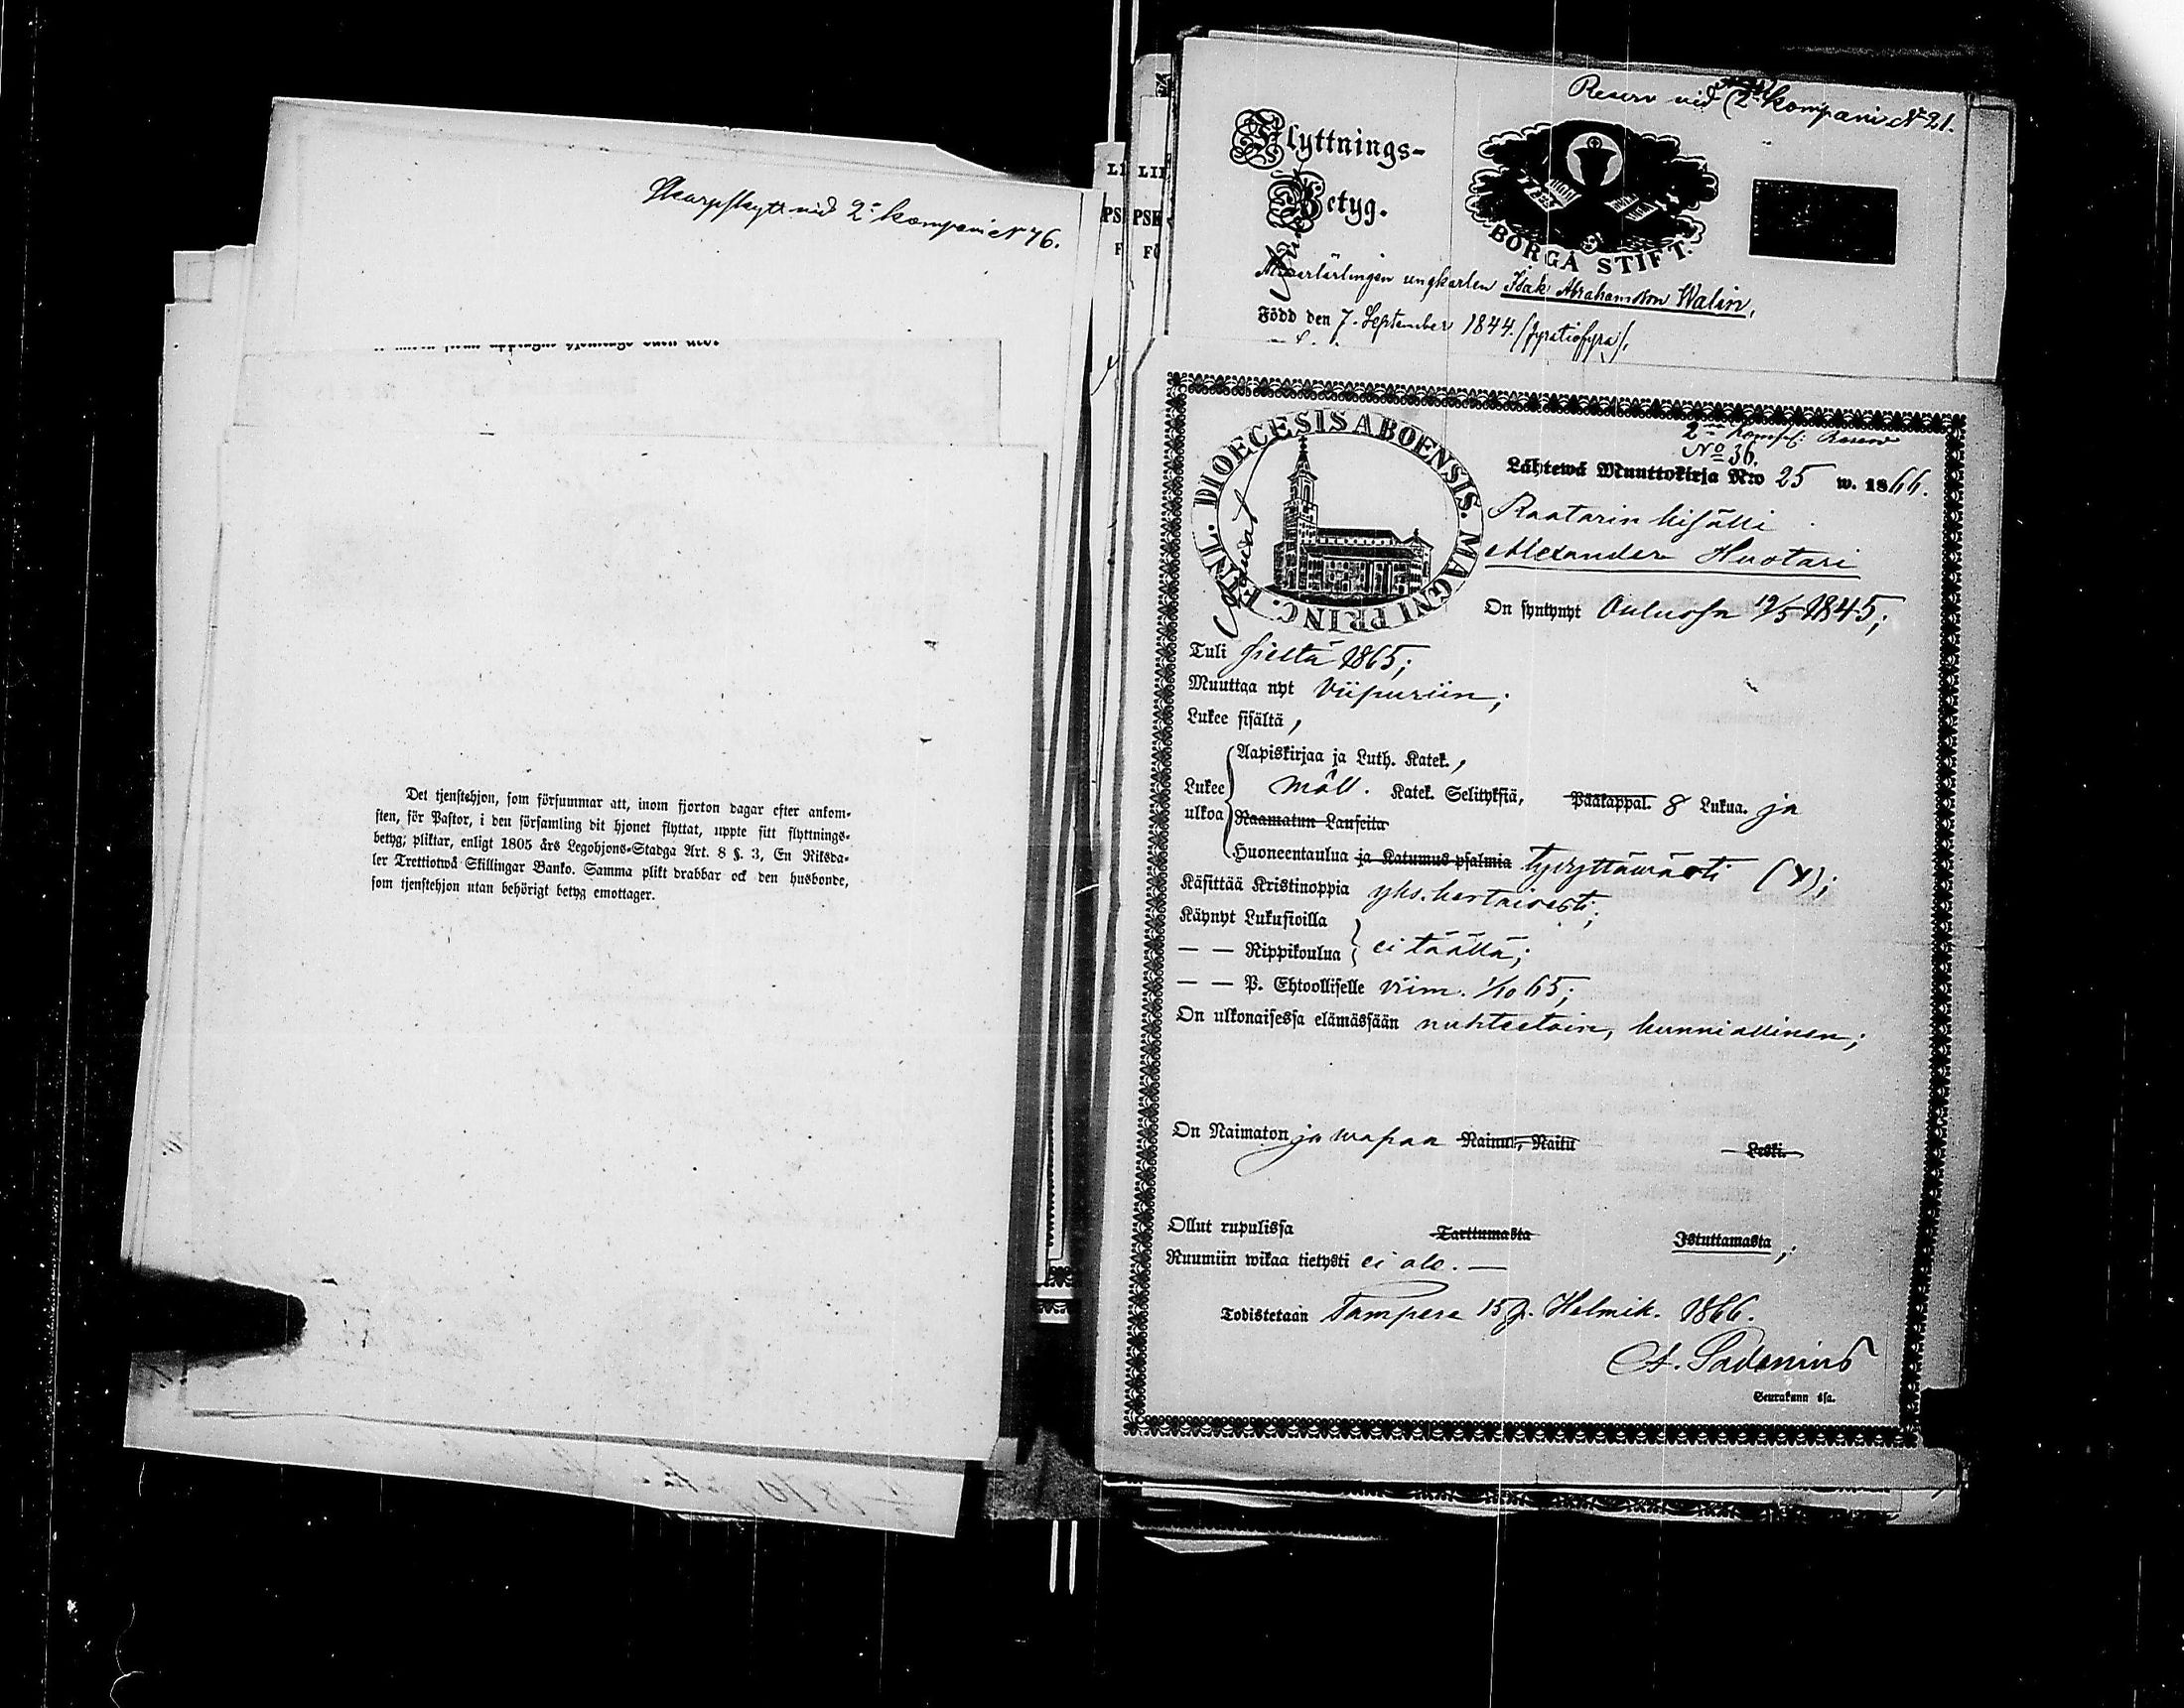 Skarpskytt vid 2a kompanie N 76.
Det tjenstehjon, som försummar att, inom fjorton dagar efter ankom-
sten, för Pastor, i den församling dit hjonet flyttat, uppte sitt flyttnings-
betyg; pliktar, enligt 1805 års Legohjons-Stadga Art. 8 §. 3, En Riksda-
ler Trettiotwå Skillingar Banko. Samma plikt drabbar ock den husbonde,
som tjenstehjon utan behörigt betyg emottager.
Reserv vid 2a kompani N 21.
Flyttnings-
Betyg.
BORGÅ STIFT.
ungkarlen Isak Abrahamsson Walin,
Född den 7. September 1844. (fyratiofyra),
DIOECESIS ABOENSIS. MAGNI PRINC. FENNL.
2 komp: Reserv
No 36.
Lähtewä Muuttokirja N:o 25 w. 1866.
Raatarin kisälli
Alexander Huotari
On syntynyt Oulussa 19/5 1845;
Tuli sieltä 1865;
Muuttaa nyt Viipuriin;
Lukee sisältä,
Aapiskirjaa ja Luth. Katek.,
Lukee ulkoa
Möll. Katek. Selityksiä, Pääkappal. 8 Lukua. ja
Raamatun Lauseita
Huoneentaulua ja Katumus psalmia tyydyttäwästi (X);
Käsittää Kristinoppia yks. kertaisesti;
Käynyt Lukusioilla
— — Rippikoulua ei täällä;
— — P. Ehtoolliselle viim. 1/10 65;
On ulkonaisessa elämässään nuhteetoin, kunniallinen;
On Naimaton ja wapaa Nainut, Naitu Leski.
Ollut rupulissa Tarttumasta Istuttamasta;
Ruumiin wikaa tietysti ei ole. —
Todistetaan Tampere 15 p. Helmik. 1866.
Seurakunn :sa.